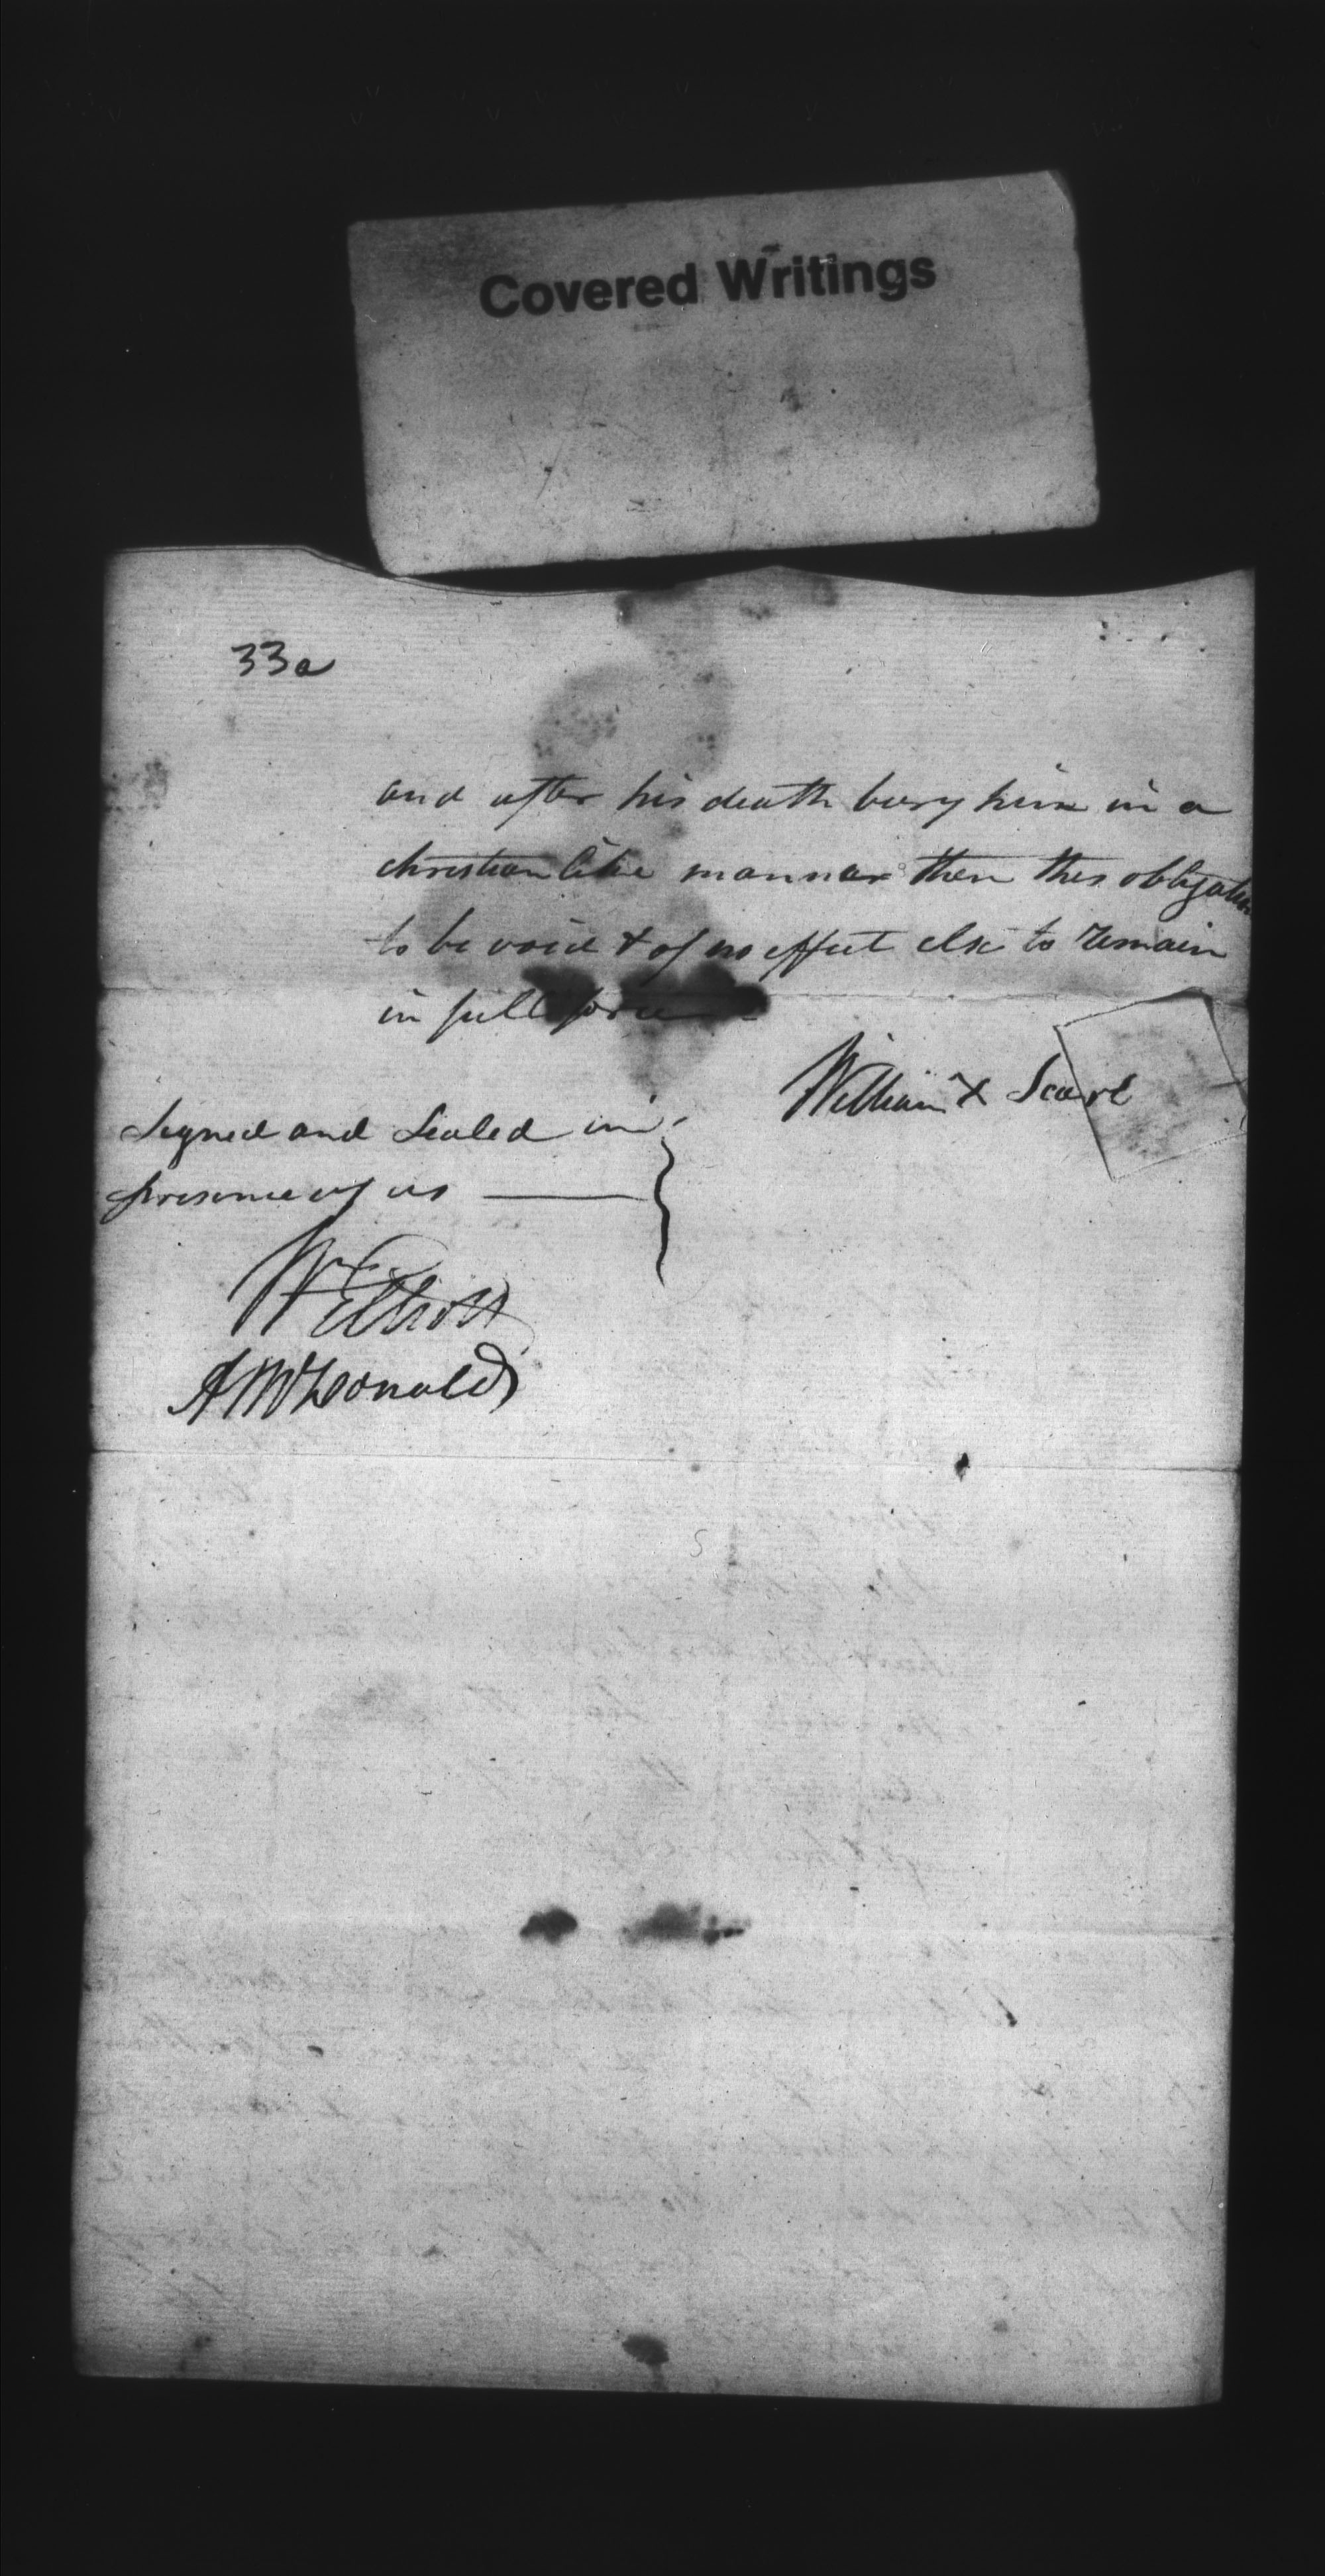 Covered Writings
33a
and after his death bury him in a
christian like manner then this obligation
to be void & of no effect else to remain
in full force
William X Scarl
Signed and Sealed in
presence of us
W Elliott
A McDonald